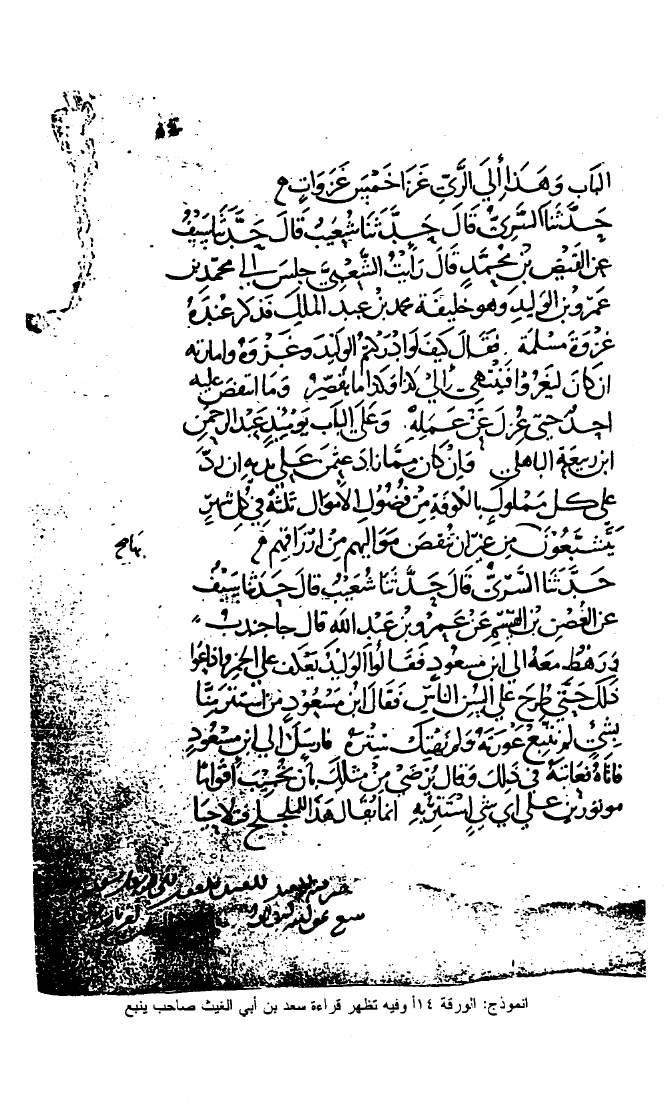 الباب وهذا أبي الري غزا خمس غزوات
حدثنا السري قال حدثنا شعيب قال حدثنا سيف
عن الفيض بن محمد قال رأيت الشعبي جلس الى محمد بن
عمرو بن الوليد وهو خليفة محمد بن عبد الملك فذكر عنده
غزوة مسلمة فقال كيف لو ادركتم الوليد وغزوه وامارته
ان كان ليغزوا فينتهي الى كذا وكذا ما يقصر وما انتقص عليه
احد حتى عزل عن عمله وعلى الباب يومئذ عبد الرحمن
ابن ربيعة الباهلي وان كان مما زاد عثمن على يديه ان رد
على كل مملوك بالكوفة من فضول الاموال ثلثة في كل شهر
يتسعون من غير ان ينقص مواليهم من ارزاقهم
حدثنا السري قال حدثنا شعيب قال حدثنا سيف
عن الغصن بن القسم عن عمرو بن عبد الله قال جا جندب
ورهط معه الى ابن مسعود فقالوا الوليد يعكف على الخمر واذاعوا
ذلك حتى طرح على السن الناس فقال ابن مسعود من استتر عنا
بشئ لم نتبع عورته ولم نهتك ستره فارسل الى ابن مسعود
فاتاه فعاتبه في ذلك وقال يرضى من مثلك بان تجيب اقواما
موتورين على اي شي استتر به انما يقال هذا للـ وتلاحيا
انموذج: الورقة ١٤أ وفيه تظهر قراءة سعد بن أبي الغيث صاحب ينبع